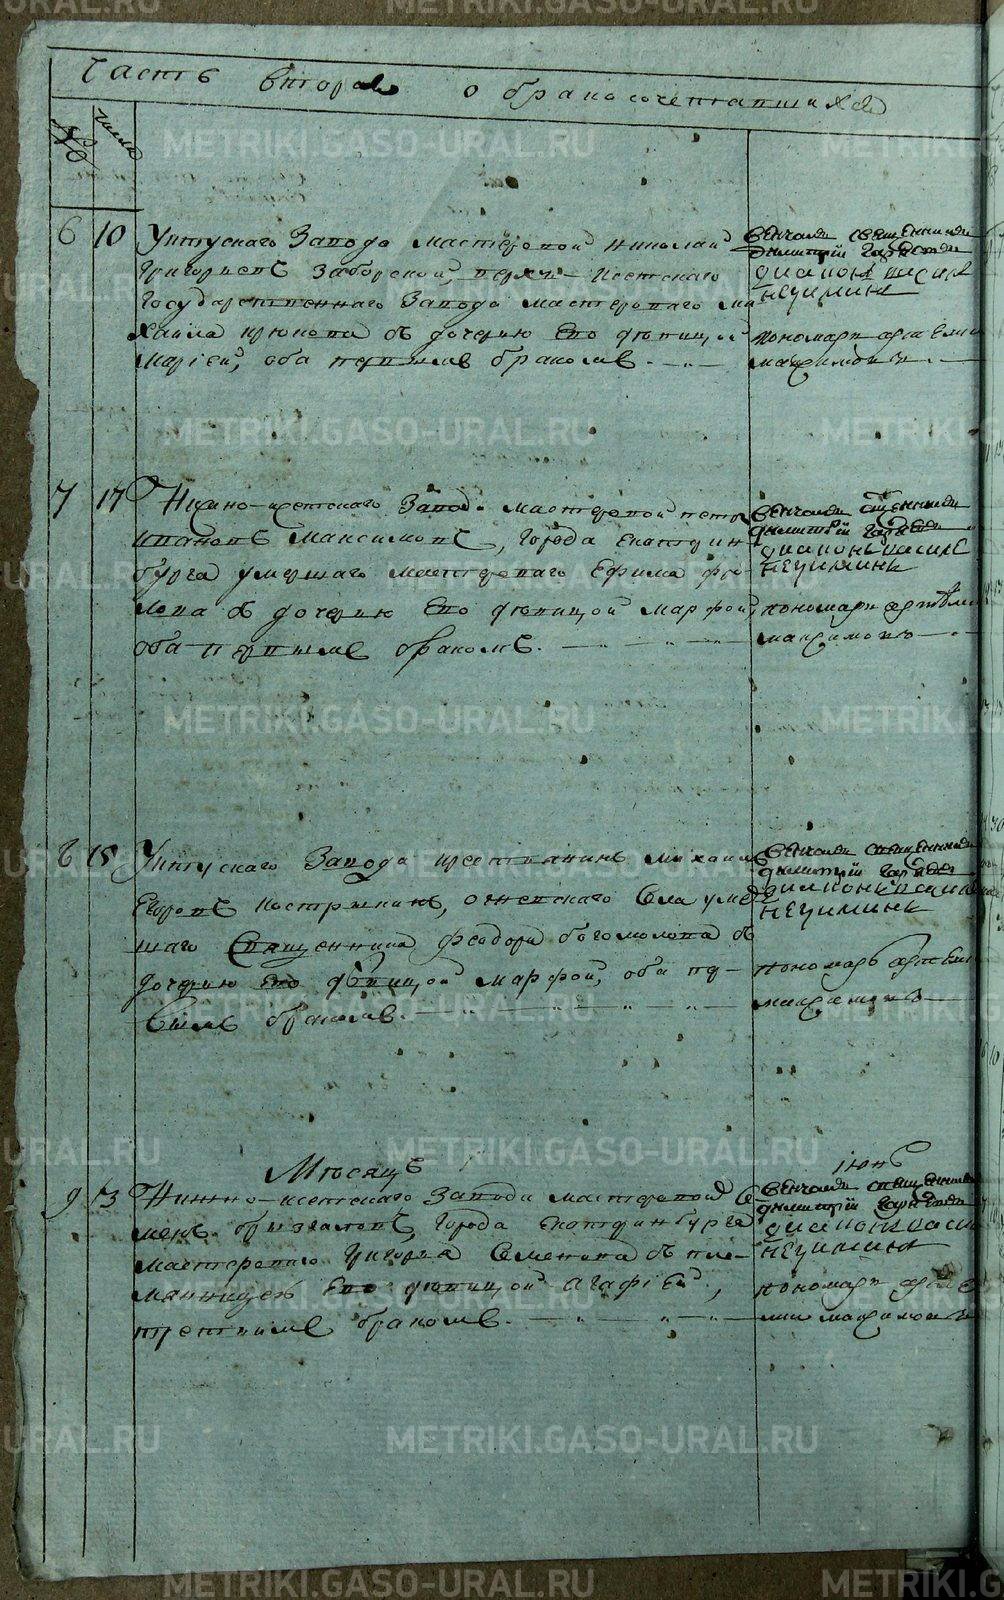 Часть вторая о бракосочетавшихся
№ числа
6 10 Уктускаго Завода мастеровой Николай
Григорьевъ Заборской, верхъ-Исетскаго
Государственнаго Завода мастероваго Ми
хаила Крюкова съ дочерью Ево девицой
Маріей, оба первымъ бракомъ.
венчали священникъ
Димитрій
диаконъ василе
Неуиминъ
пономарь артеми
максимовъ
7 17 Нижно-исетскаго Завода мастеровой петръ
Ивановъ Максимовъ, Города Екатерин
бурга умершаго мастероваго Ефима фро
лова съ дочерью Ево девицой марфой,
оба первымъ бракомъ.
венчали священникъ
димитрій
диаконъ василе
Неуиминъ
пономарь артеми
максимовъ
8 18 Уктускаго Завода крестьянинъ михаилъ
Егоровъ Костромкинъ, огневскаго села умер
шаго Священника феодора богомолова съ
дочерью Ево девицой марфой, оба пер-
вымъ бракомъ.
венчали священникъ
димитрій
диаконъ василе
Неуиминъ
пономарь артеми
максимовъ
Месяцъ іюнь
9 13 Нижно-исетскаго Завода мастеровой Се
менъ брызгаловъ, Города Екатеринбурга
мастероваго Григорья Семенова съ пле-
мянницею Ево девицой Агафіей,
третьимъ бракомъ.
венчали священникъ
димитрій
диаконъ васи
Неуиминъ
пономарь арте
мии максимовъ
METRIKI.GASO-URAL.RU